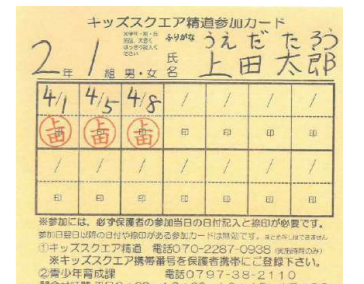 キッズスクエア精道参加カード
ふりがな うえだ たろう
2年 1組 男・女 氏名 上田 太郎
4/1 4/5 4/8 / / / /
上田 上田 上田 印 印 印 印
/ / / / / / /
印 印 印 印 印 印 印
※参加には、必ず保護者の参加当日の日付記入と捺印が必要です。
参加日翌日以降の日付や捺印がある参加カードは無効です。
①キッズスクエア精道 電話070-2287-0938
※キッズスクエア携帯番号を保護者携帯にご登録下さい。
②青少年育成課 電話0797-38-2110